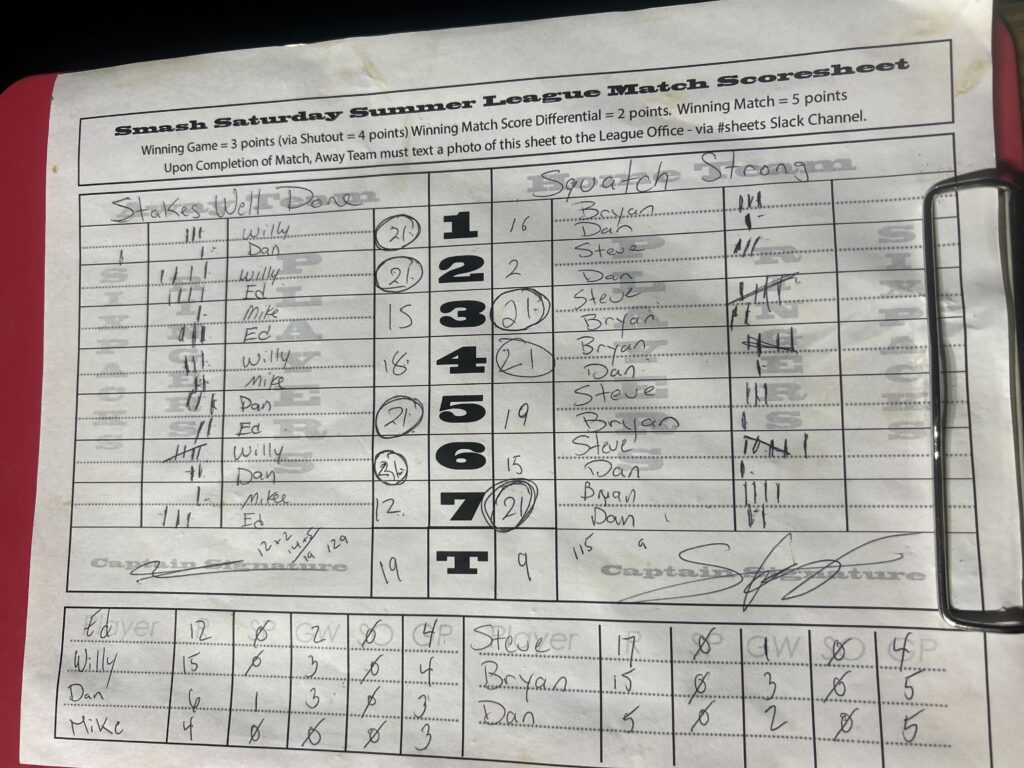 Smash Saturday Summer League Match Scoresheet
Winning Game = 3 points (via Shutout = 4 points) Winning Match Score Differential = 2 points. Winning Match = 5 points
Upon Completion of Match, Away Team must text a photo of this sheet to the League Office - via #sheets Slack Channel.
Stakes Well Done
Squatch Strong
Willy 21 1 16 Bryan
Dan Dan
Willy 21 2 2 Steve
Ed Dan
Mike 15 3 21 Steve
Ed Bryan
Willy 18 4 21 Bryan
Mike Dan
Dan 21 5 19 Steve
Ed Bryan
Willy 21 6 15 Steve
Dan Dan
Mikee 12 7 21 Bryan
Ed Dan
SIXPACKS PLAYERS PLAYERS RINGERS SIXPACKS
12x2 129
115
Captain Signature 19 T 9 Captain Signature
Player R SP GW SO GP Player R SP GW SO GP
Ed 12 0 2 0 4 Steve 17 0 1 0 4
Willy 15 0 3 0 4 Bryan 15 0 3 0 5
Dan 6 1 3 0 3 Dan 5 0 2 0 5
Mike 4 0 0 0 3